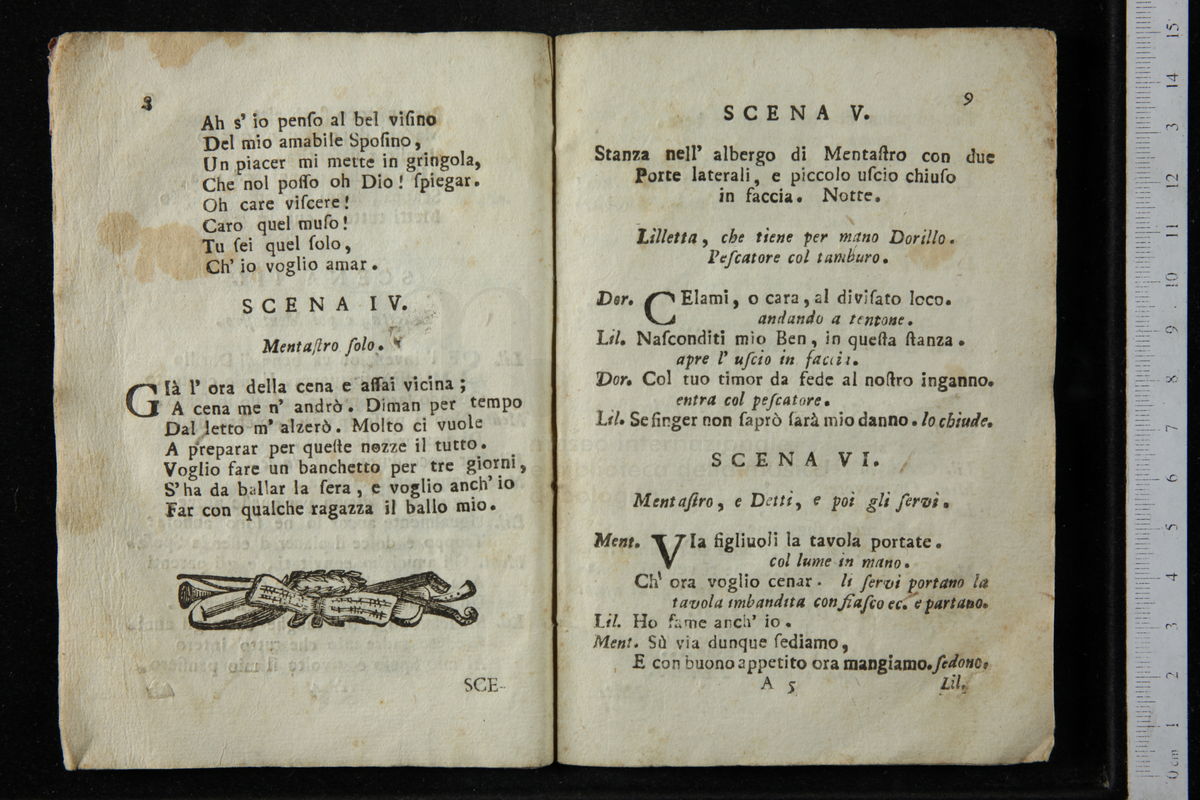 8
Ah s' io penſo al bel viſino
Del mio amabile Spoſino,
Un piacer mi mette in gringola,
Che nol poſſo oh Dio! ſpiegar.
Oh care viſcere!
Caro quel muſo!
Tu ſei quel ſolo,
Ch' io voglio amar.
SCENA IV.
Mentaſtro ſolo.
GIà l' ora della cena e aſſai vicina;
A cena me n' andrò. Diman per tempo
Dal letto m' alzerò. Molto ci vuole
A preparar per queſte nozze il tutto.
Voglio fare un banchetto per tre giorni,
S' ha da ballar la ſera, e voglio anch' io
Far con qualche ragazza il ballo mio.
SCE-
9
SCENA V.
Stanza nell' albergo di Mentaſtro con due
Porte laterali, e piccolo uſcio chiuſo
in faccia. Notte.
Lilletta, che tiene per mano Dorillo.
Peſcatore col tamburo.
Dor. CElami, o cara, al diviſato loco.
andando a tentone.
Lil. Naſconditi mio Ben, in queſta ſtanza.
apre l' uſcio in faccia.
Dor. Col tuo timor da fede al noſtro inganno.
entra col peſcatore.
Lil. Se finger non ſaprò ſarà mio danno. lo chiude.
SCENA VI.
Mentaſtro, e Detti, e poi gli ſervi.
Ment. VIa figliuoli la tavola portate.
col lume in mano.
Ch' ora voglio cenar. li ſervi portano la
tavola imbandita con fiaſco ec. e partano.
Lil. Ho fame anch' io.
Ment. Sù via dunque ſediamo,
E con buono appetito ora mangiamo. ſedono.
A 5
Lil.